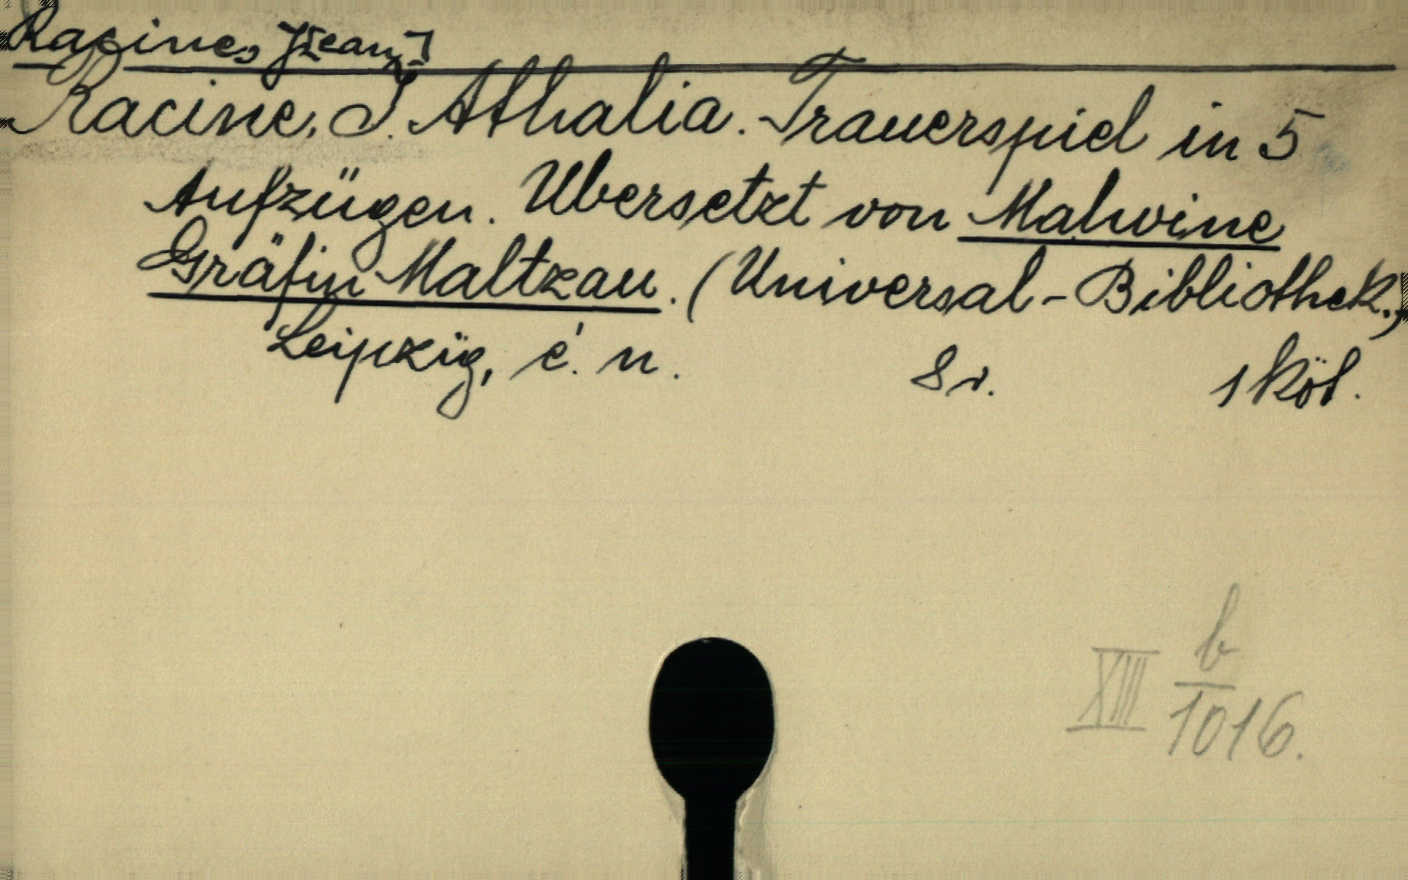 Racine, J[ean]
Racine, J. Athalia. Trauerspiel in 5
Aufzügen. Übersetzt von Malwine
Gräfin Maltzau. (Universal-Bibliothek.)
Leipzig, é. n. 8r. 1 köt.
XIII b/1016.